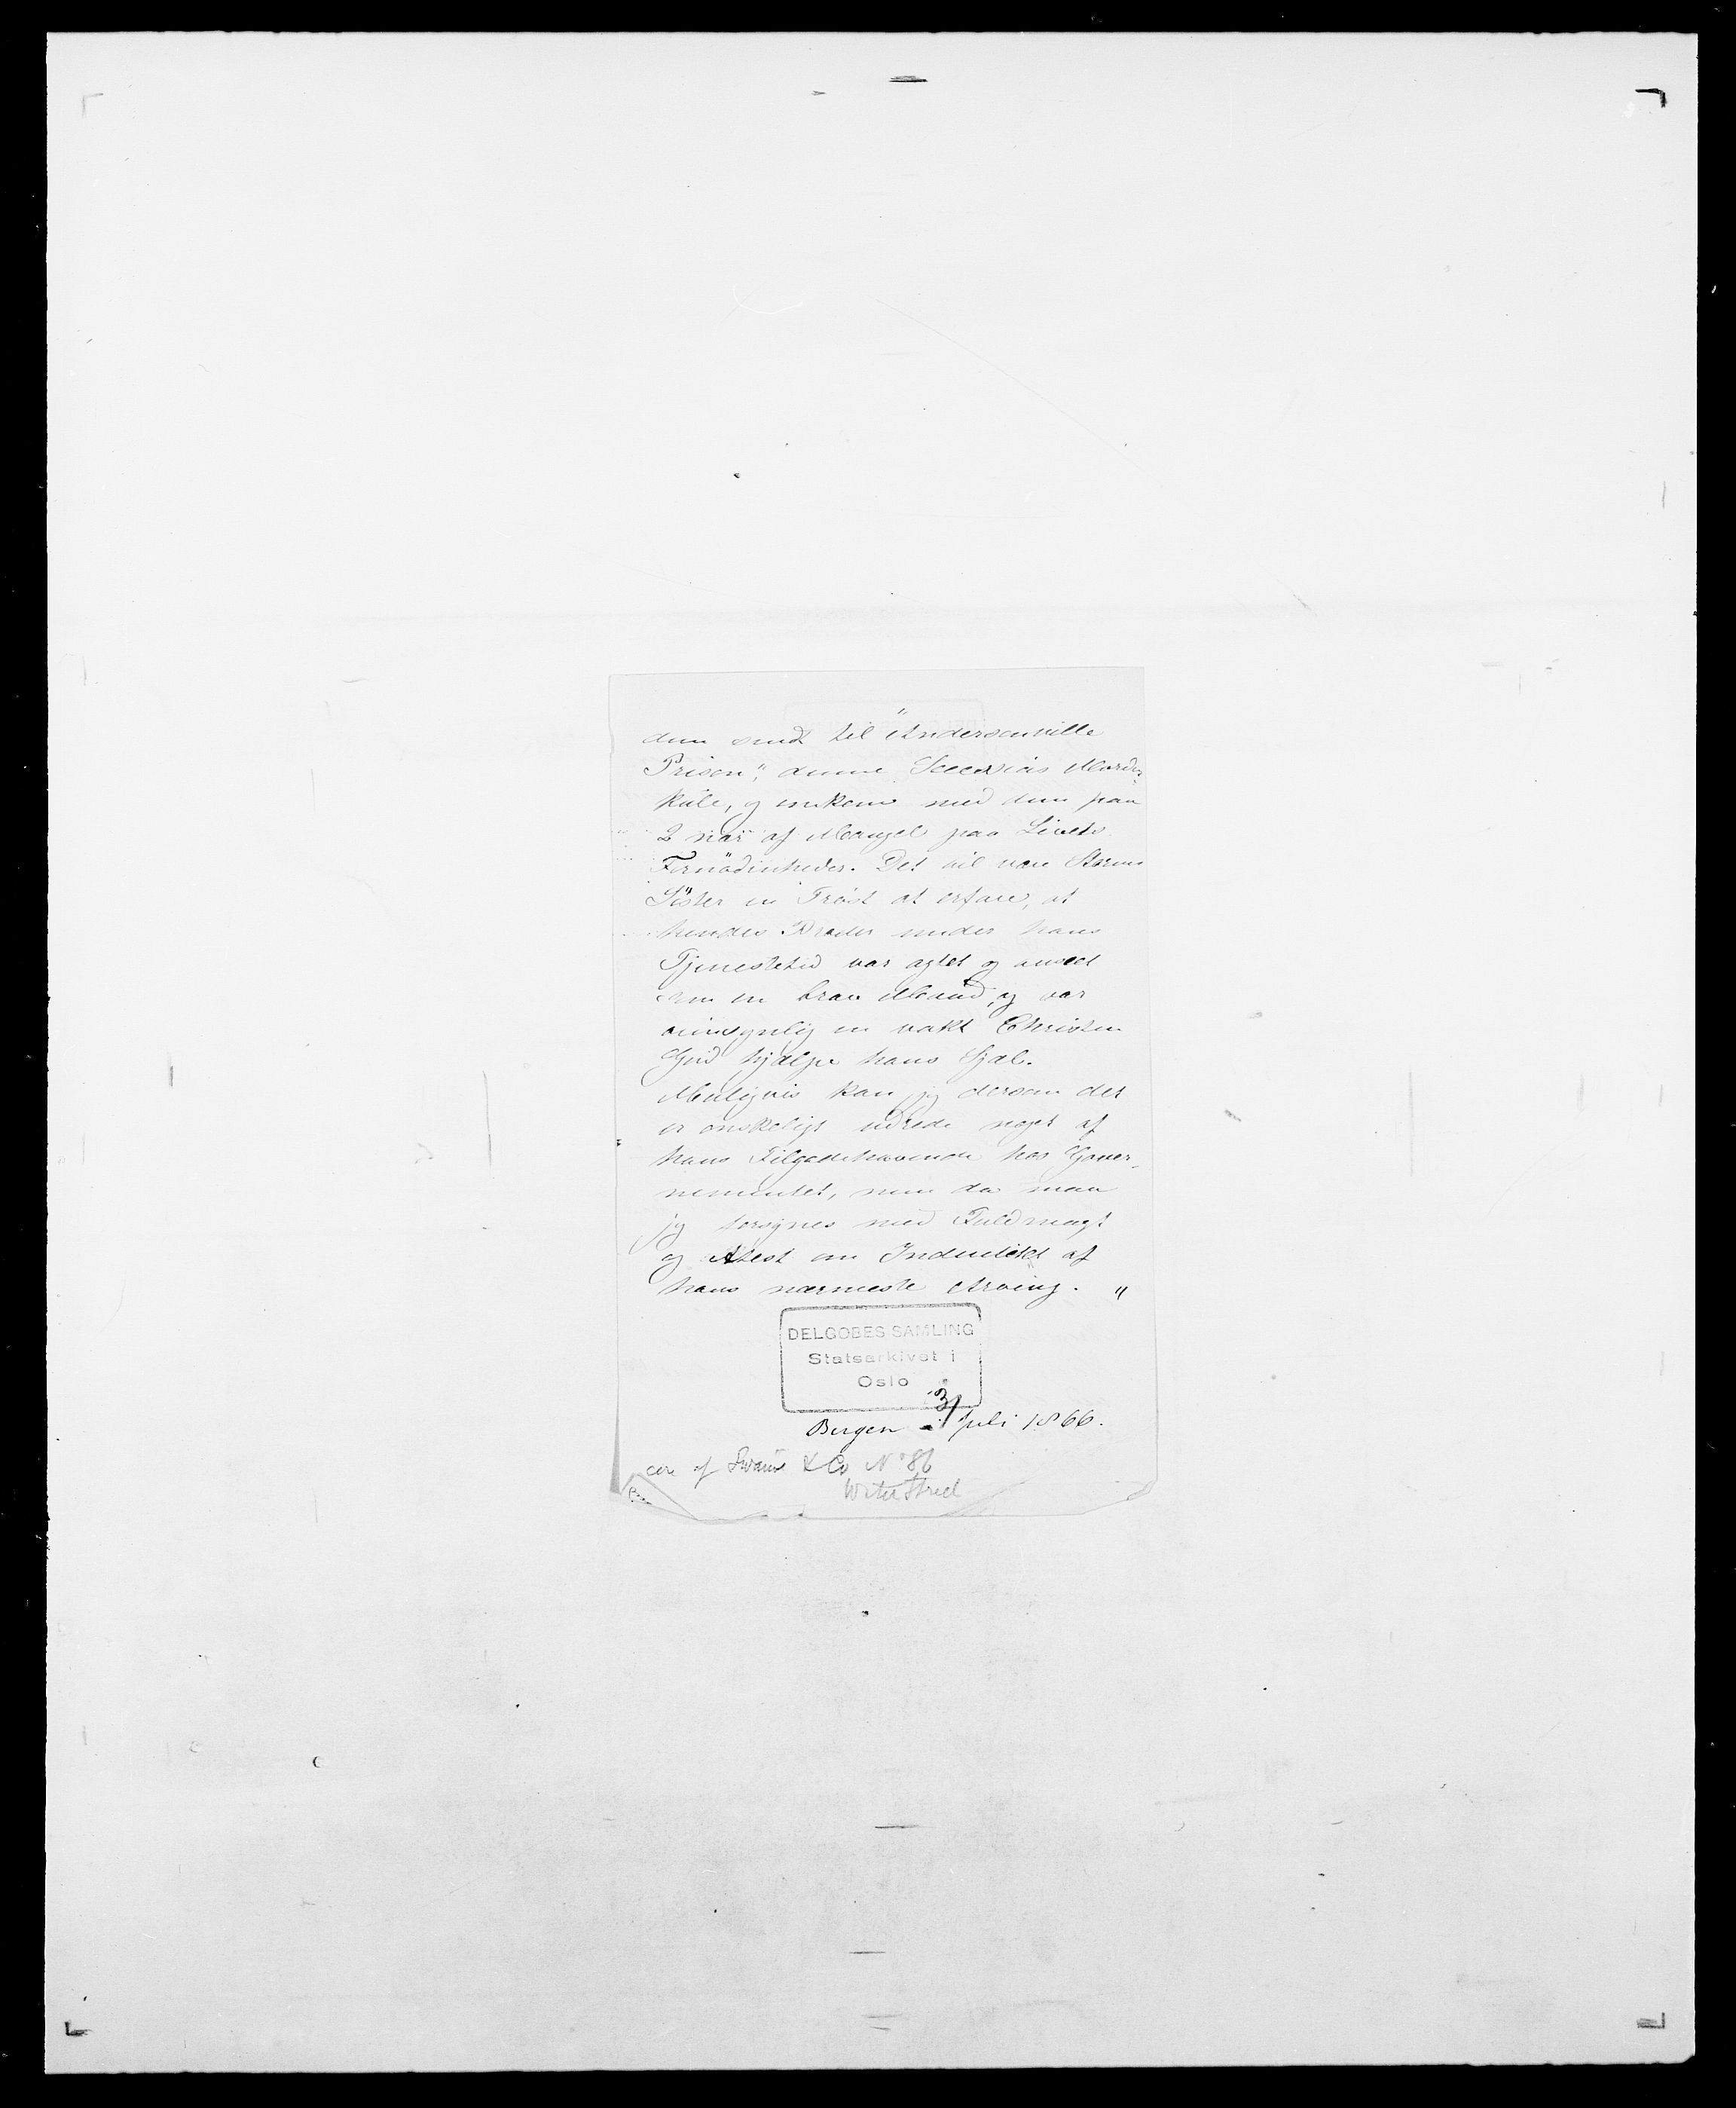 dem sendt til "Andersonville
Prison", denne Secessias Morder-
kule, og omkom med dem paa
2 nær af Mangel paa Livets
Fornödenheder. Det vil være
Söster en Tröst at erfare, at
hendes Broder under hans
Tjenestetid var agtet og anseet
som en brav Mand, og var
en vakt Christen
Gud hjælpe hans Sjæl.
Muligvis kan jeg dersom det
er önskeligt udrede noget af
hans Tilgodehavende hos Gouver-
nementet, men da maa
jeg forsynes med Fuldmagt
og Atest om Indentitet af
hans nærmeste Arving. "
DELGOBES SAMLING
Statsarkivet i
Oslo
Bergen 3/ Juli 1866.
care of Swain & Co No 86
Water Street